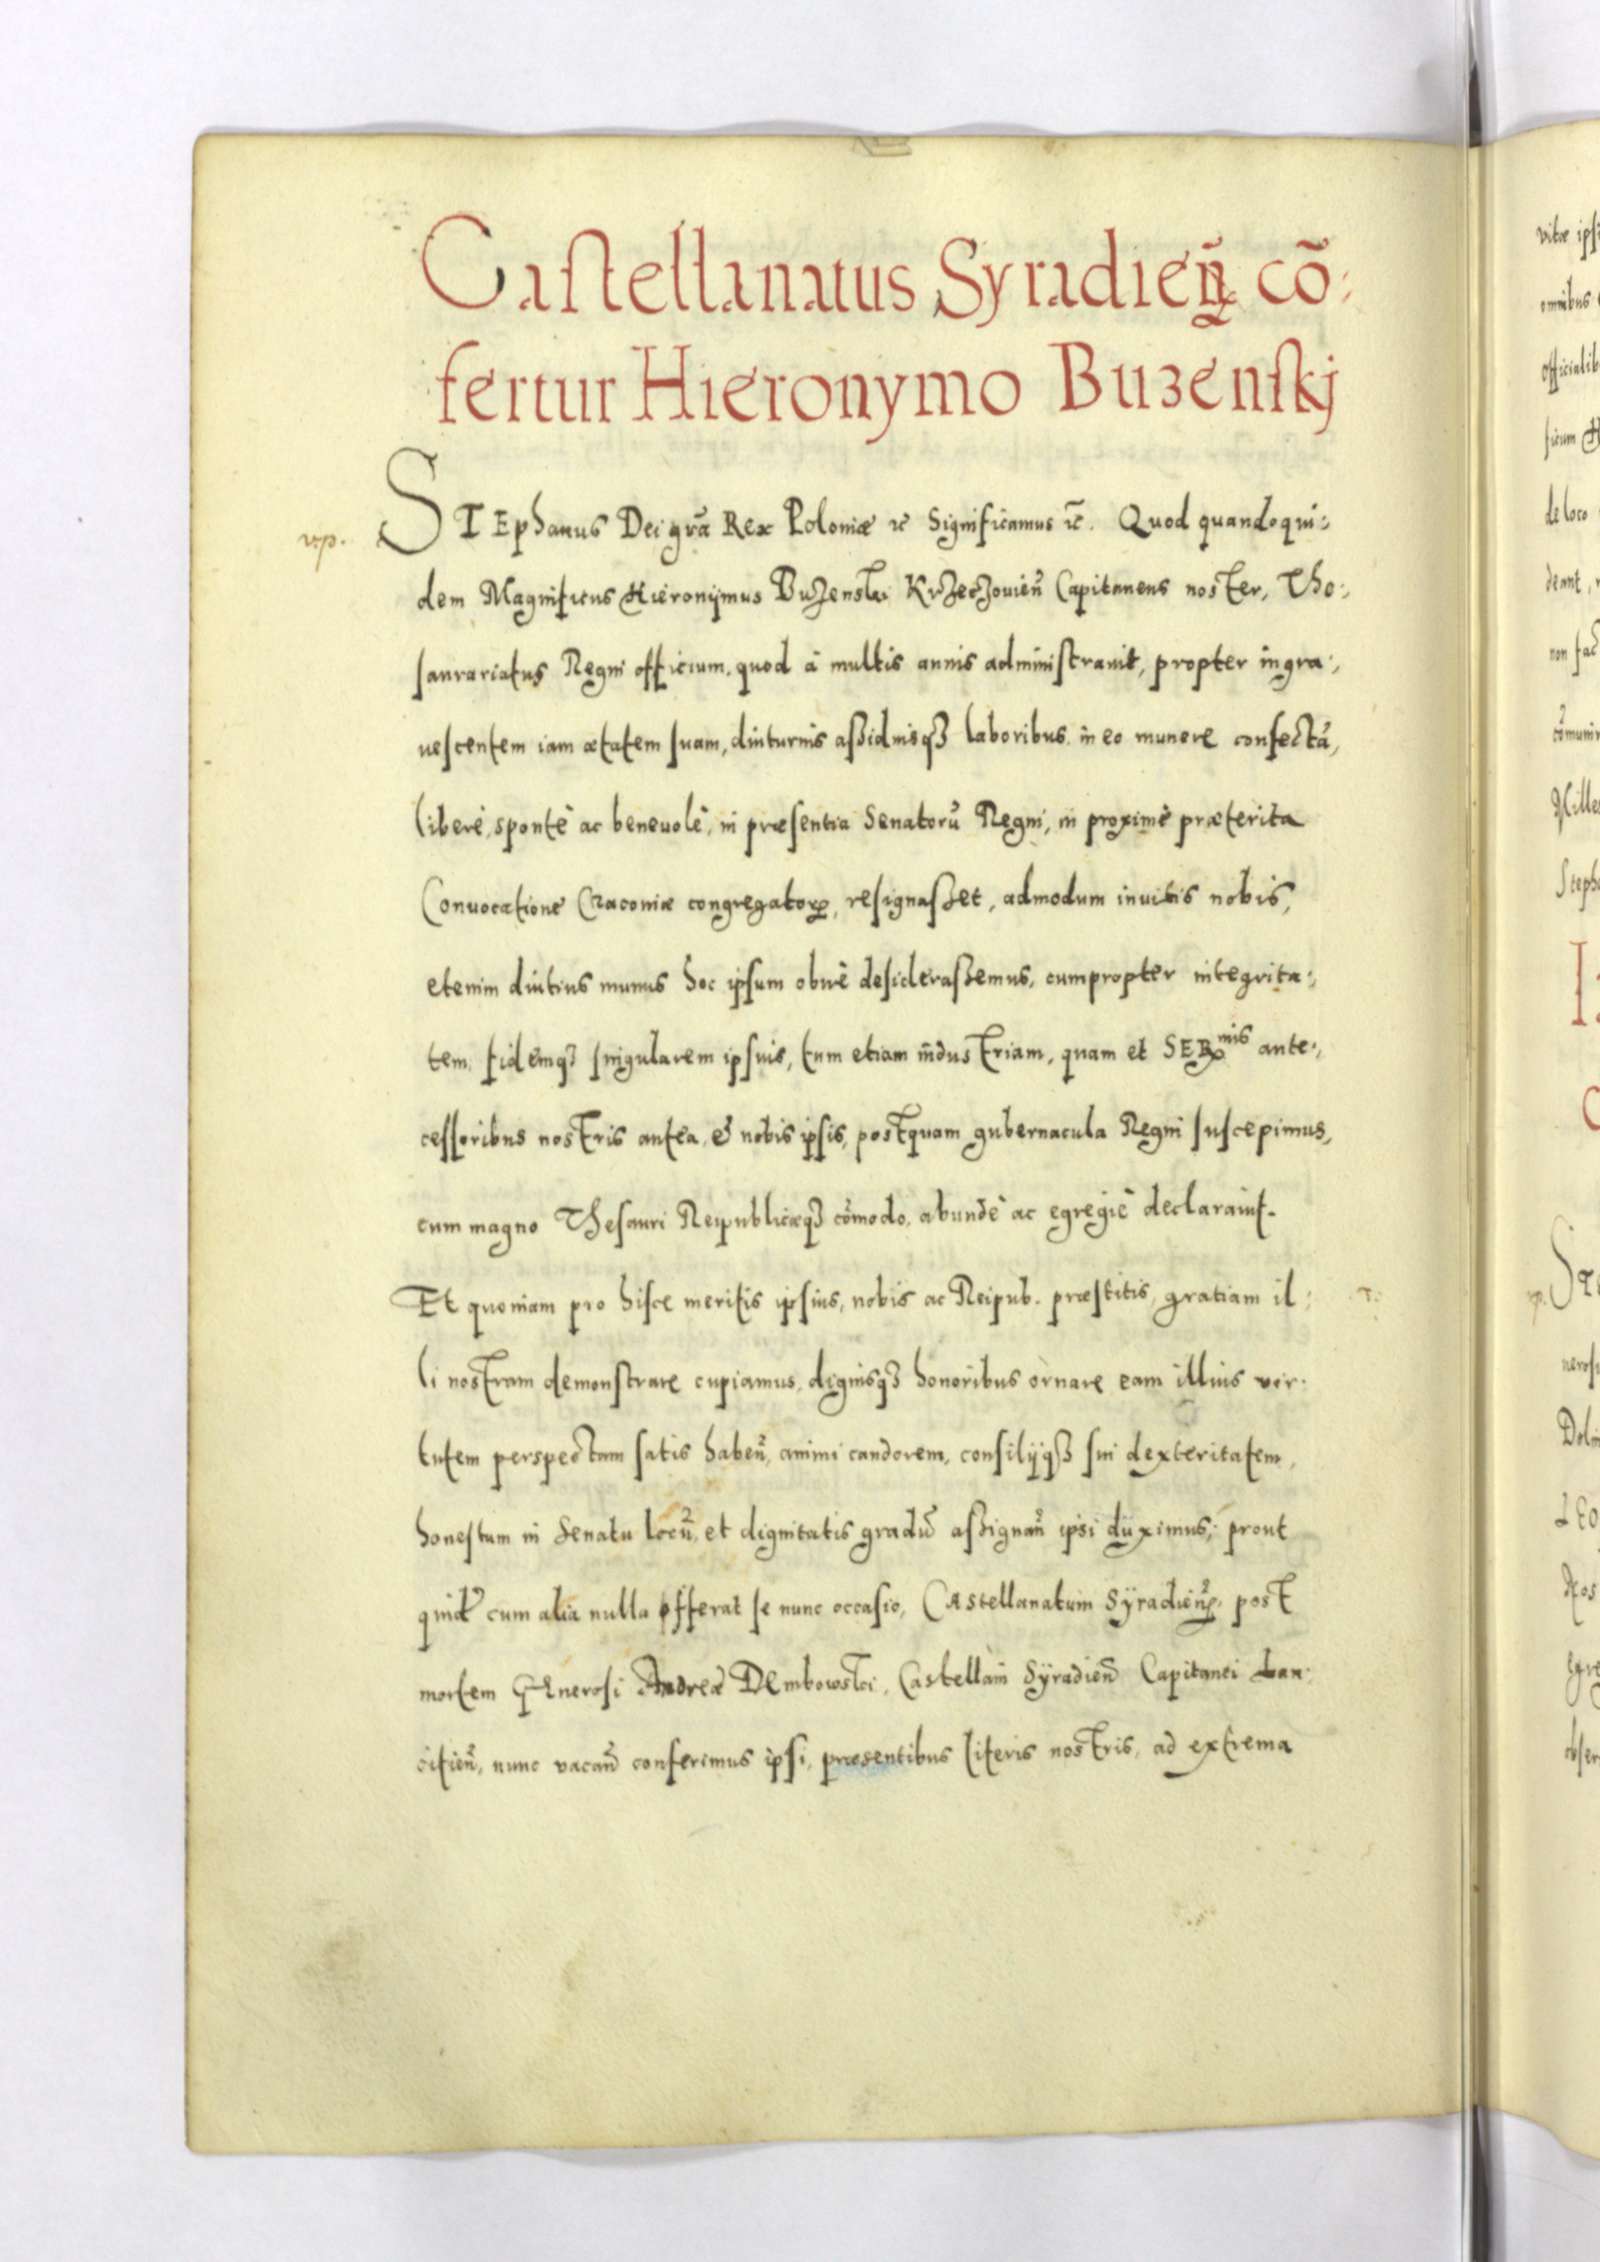 Castellanatus Syradień cō-
fertur Hieronymo Buzenskj
vp.
STEphanus Dei grā Rex Poloniæ &c Significamus &c. Quod quandoqui-
dem Magnificus Hieronymus Buzenski Krzeczovień Capitaneus noster, The-
saurariatus Regni officium, quod à multis annis administravit, propter ingra-
uescentem iam ætatem suam, diuturnis assiduisq3 laboribus in eo munere confectā,
liberè, spontè ac beneuolè, in præsentia Senatorū Regni, in proximè præterita
Convocatione Cracoviæ congregatorꝝ, resignasset, admodum invitis nobis,
etenim diutius munus hoc ipsum obire desiderassemus, cum propter integrita-
tem, fidemq3 singularem ipsius, tum etiam industriam, quam et SERmis ante-
cessoribus nostris antea, & nobis ipsis, postquam gubernacula Regni suscepimus,
cum magno Thesauri Reipublicæq3 cōmodo, abundè ac egregiè declarauit.
Et quoniam pro hisce meritis ipsius, nobis ac Reipub. præstitis, gratiam il-
li nostram demonstrare cupiamus, dignisq3 honoribus ornare eam illius vir-
tutem perspectam satis haben̄, animi candorem, consilijq3 sui dexteritatem,
honestum in Senatu locū, et dignitatis gradū assignan̄ ipsi duximus, prout
quidē cum alia nulla offerat se nunc occasio, Castellanatum Syradień, post
mortem GEnerosi Andreæ DEmbowski, Castellani Syradień Capitanei Lan-
citień, nunc vacan̄ conferimus ipsi, præsentibus literis nostris, ad extrema